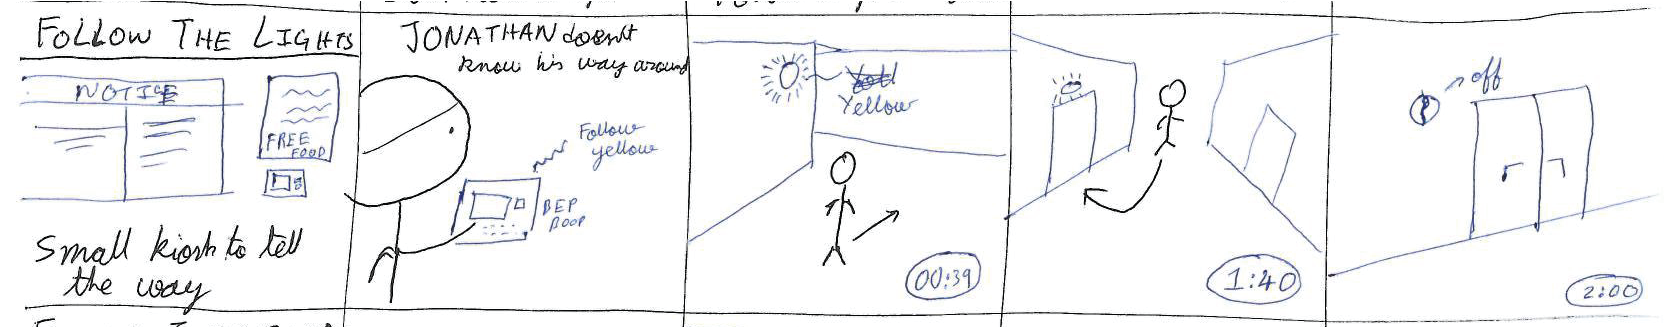 FOLLOW THE LIGHTS
NOTICE
FREE
FOOD
Small kiosk to tell
the way
JONATHAN doesn't
know his way around
Follow
yellow
BEP
BOOP
Yellow
00:39
1:40
off
2:00